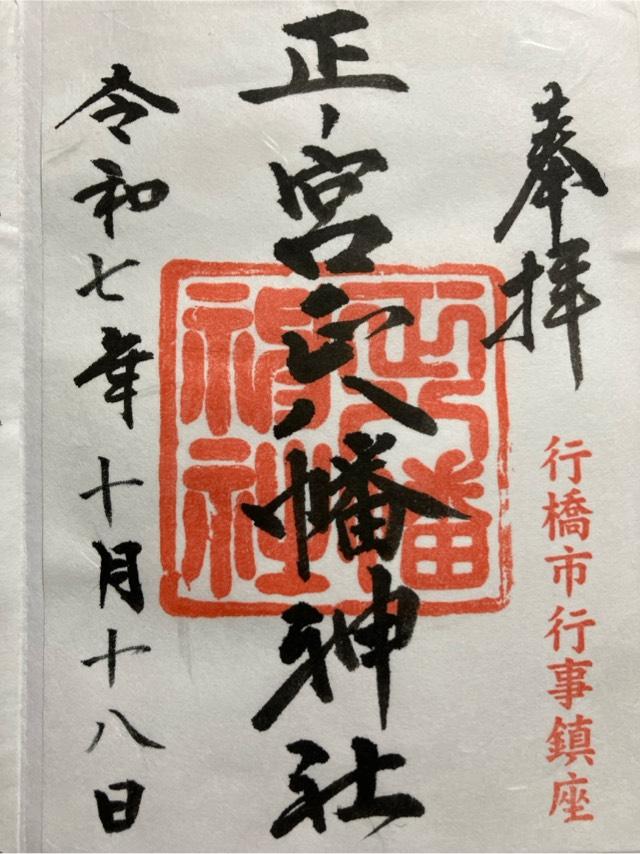 奉拝
行橋市行事鎮座
正ノ宮正八幡神社
正八幡神社
令和七年十月十八日